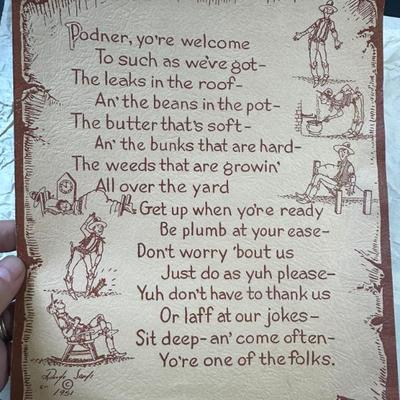 Podner, yo're welcome
To such as we've got-
The leaks in the roof-
An' the beans in the pot-
The butter that's soft-
An' the bunks that are hard-
The weeds that are growin'
All over the yard
Get up when yo're ready
Be plumb at your ease-
Don't worry 'bout us
Just do as yuh please-
Yuh don't have to thank us
Or laff at our jokes-
Sit deep- an' come often-
Yo're one of the folks.
©
1951